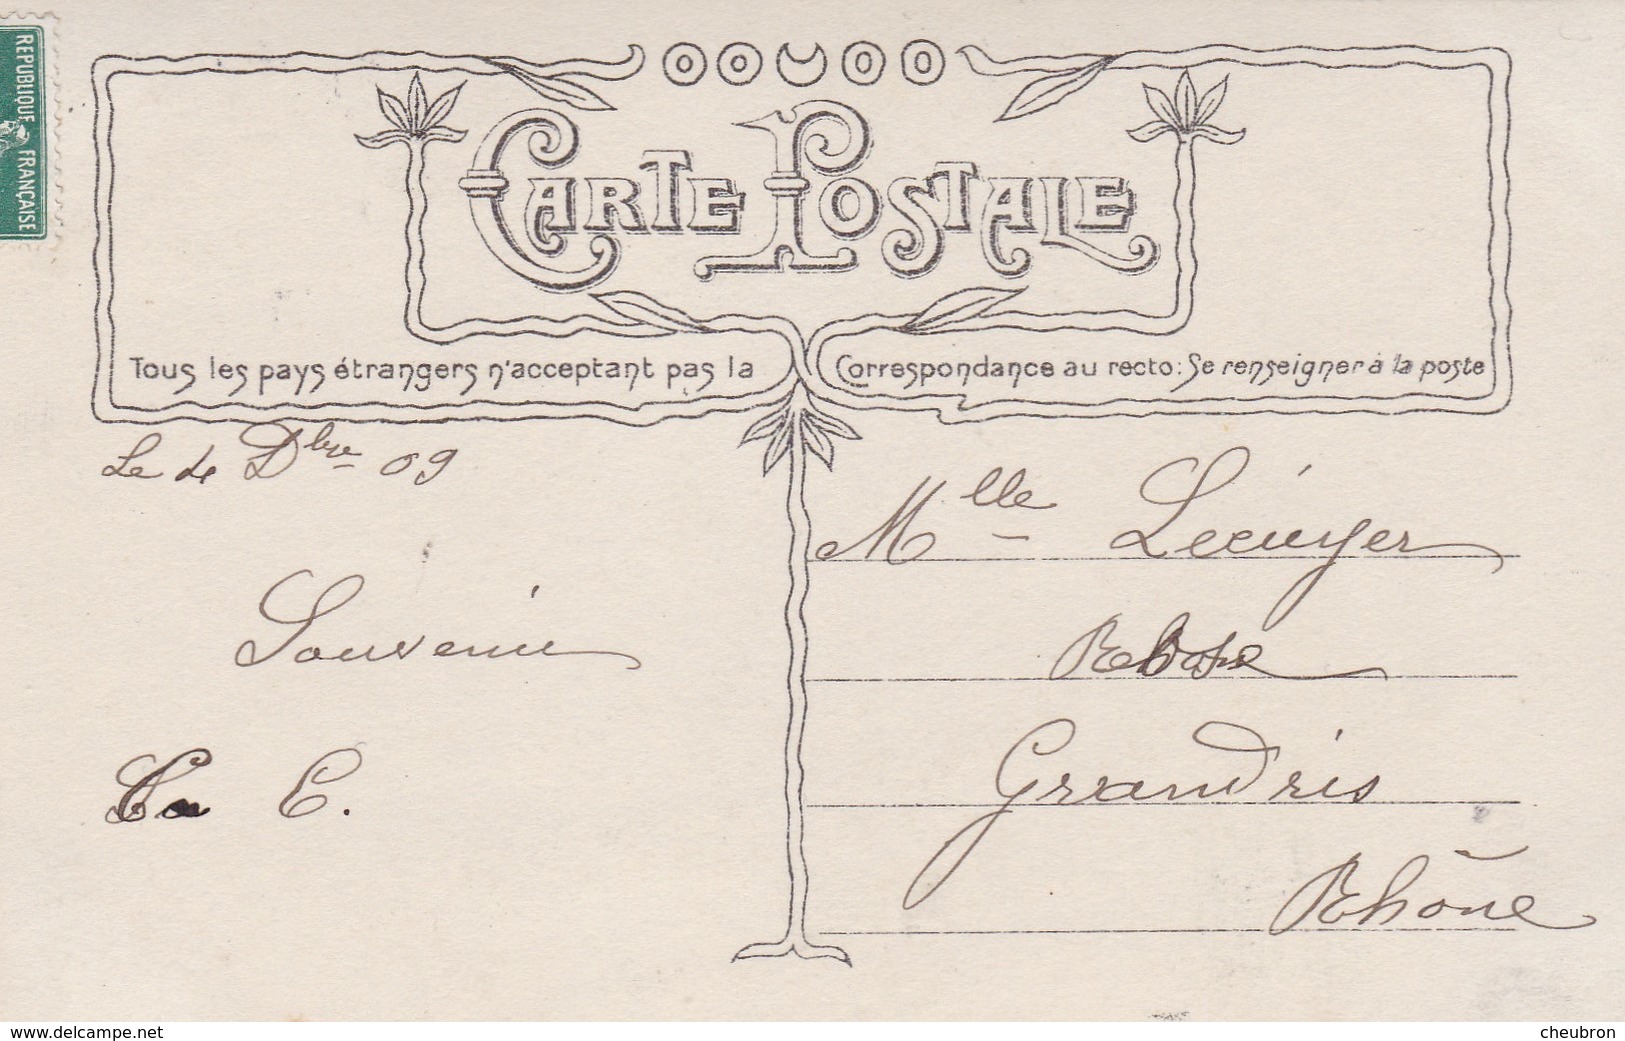 REPUBLIQUE FRANÇAISE
CARTE POSTALE
Tous les pays étrangers n'acceptant pas la Correspondance au recto: Se renseigner à la poste
Le 4 Dbre 09
Souvenir
E.
Mlle Lécuyer
Grandris
Rhône
www.delcampe.net
cheubron